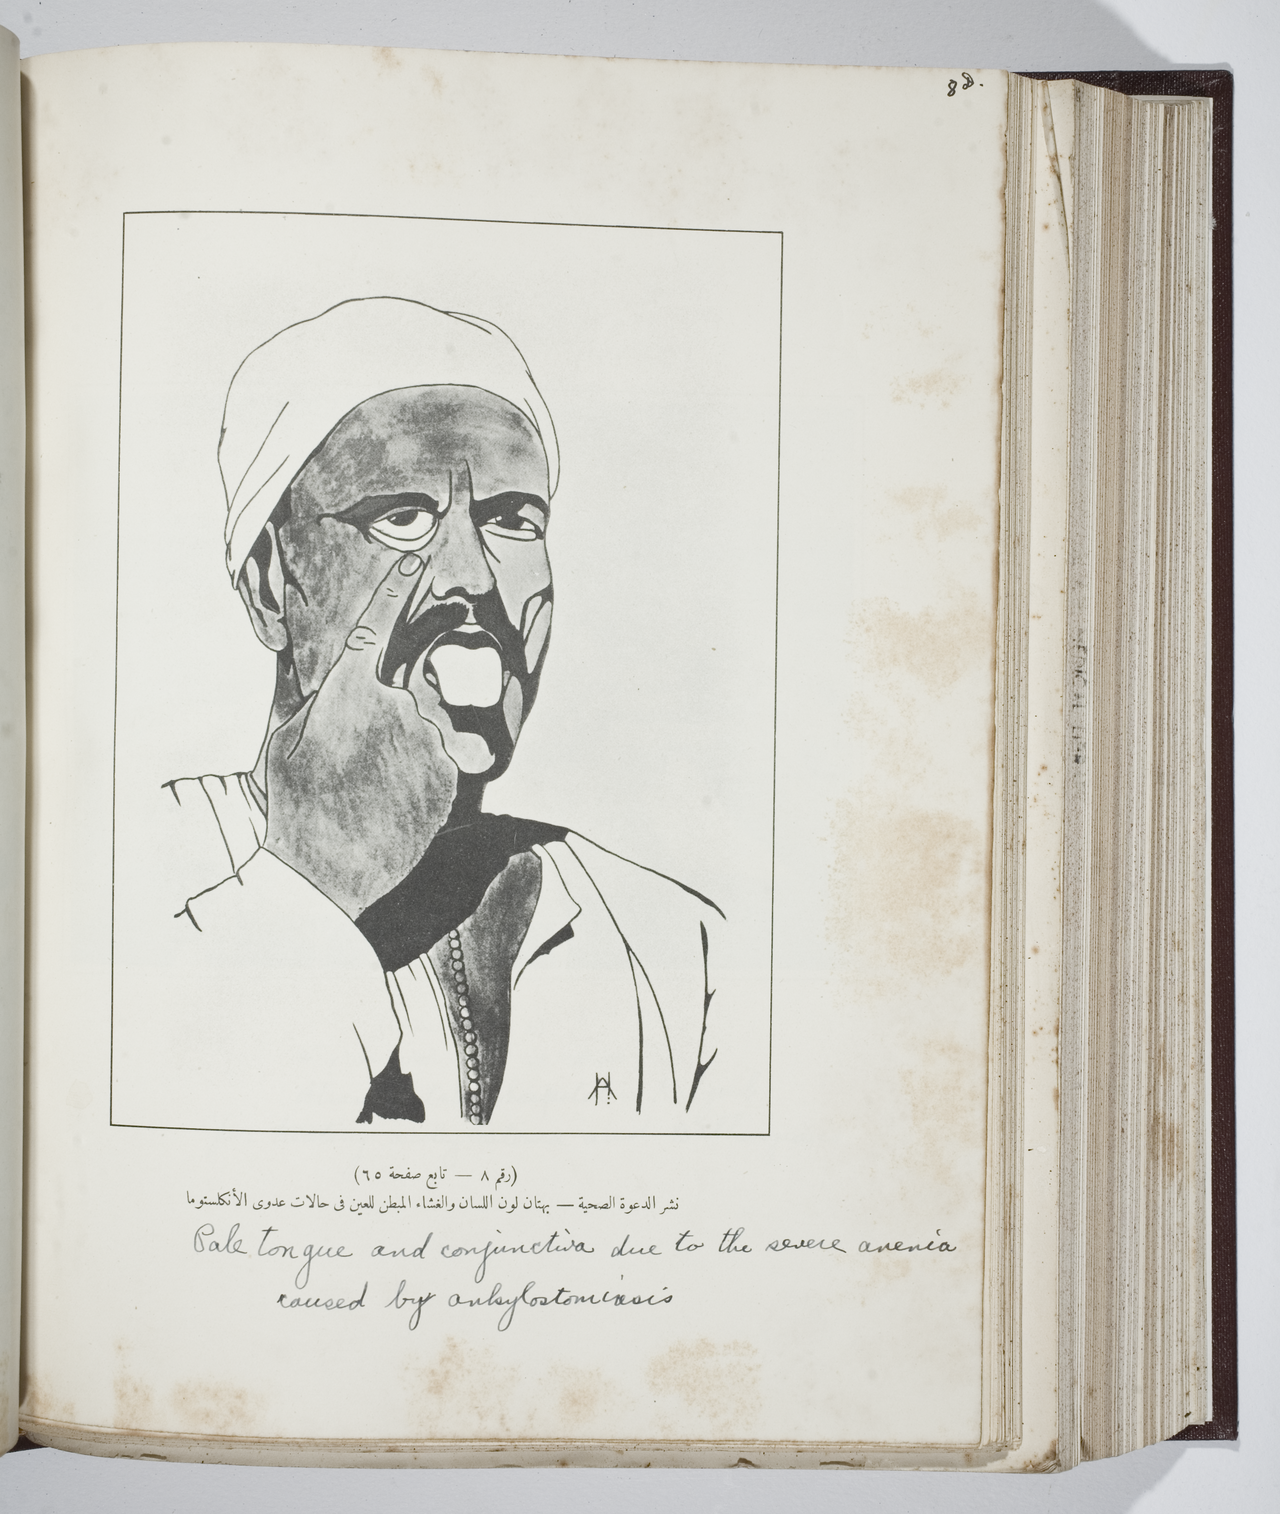 88.
(رقم ٨ — تابع صفحة ٦٥)
نشر الدعوة الصحية — بهتان لون اللسان والغشاء المبطن للعين فى حالات عدوى الأنكلستوما
Pale tongue and conjunctiva due to the severe anemia
caused by ankylostomiasis